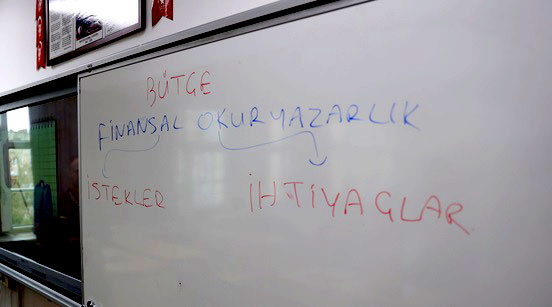 BÜTGE
FİNANSAL OKURYAZARLIK
İSTEKLER İHTİYAGLAR